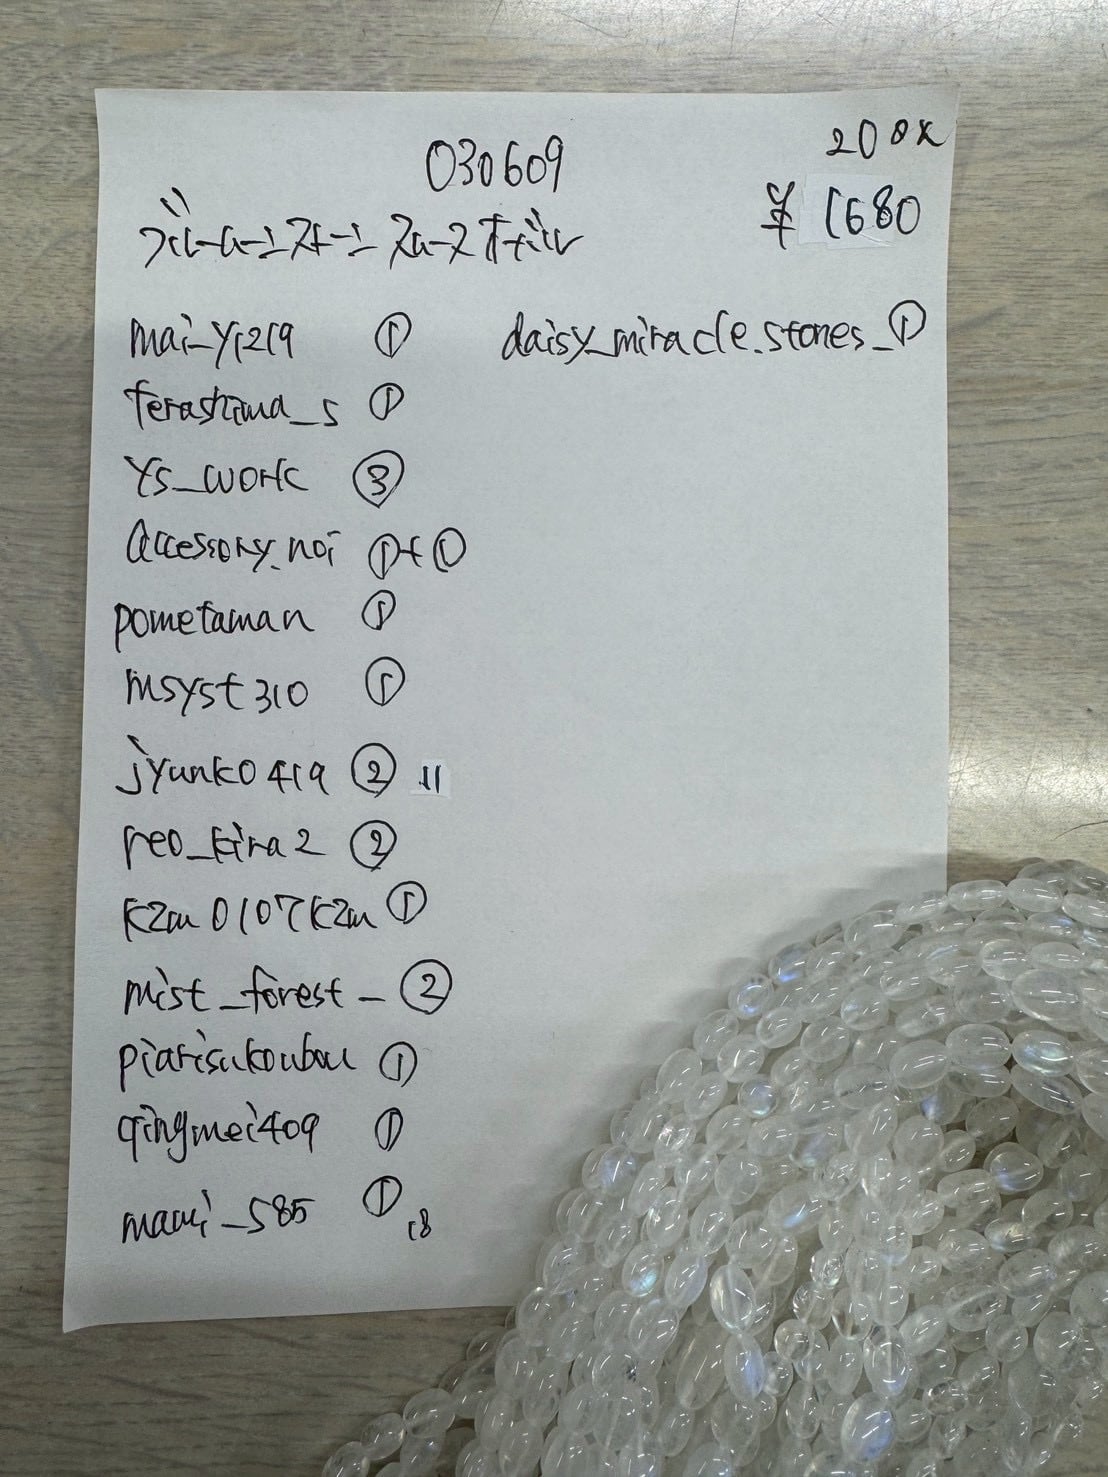 030609
200x
¥1680
ブルームーンストーン スムース オーバル
mai_y1219 ①
terashima_s ①
YS_work ③
accessory.noi ①+①
pometaman ①
msyst310 ①
jyunko419 ② 11
reo_kira2 ②
kzm0107kzm ①
mist_forest_ ②
piarisukoubou ①
qingmei409 ①
mami_585 ① 18
daisy_miracle.stones_ ①